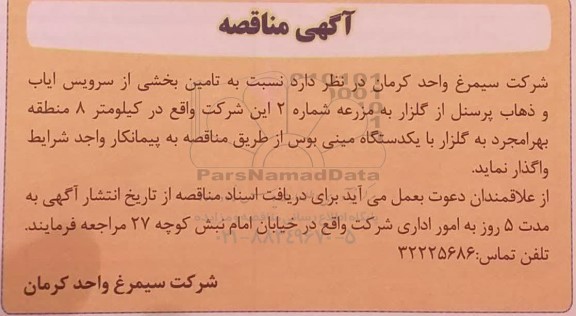 آگهی مناقصه
شرکت سیمرغ واحد کرمان در نظر دارد نسبت به تامین بخشی از سرویس ایاب
و ذهاب پرسنل از گلزار به مزرعه شماره ۲ این شرکت واقع در کیلومتر ۸ منطقه
بهرامجرد به گلزار با یکدستگاه مینی بوس از طریق مناقصه به پیمانکار واجد شرایط
واگذار نماید.
ParsNamadData
از علاقمندان دعوت بعمل می آید برای دریافت اسناد مناقصه از تاریخ انتشار آگهی به
مدت ۵ روز به امور اداری شرکت واقع در خیابان امام نبش کوچه ۲۷ مراجعه فرمایند.
تلفن تماس:۳۲۲۲۵۶۸۶
شرکت سیمرغ واحد کرمان